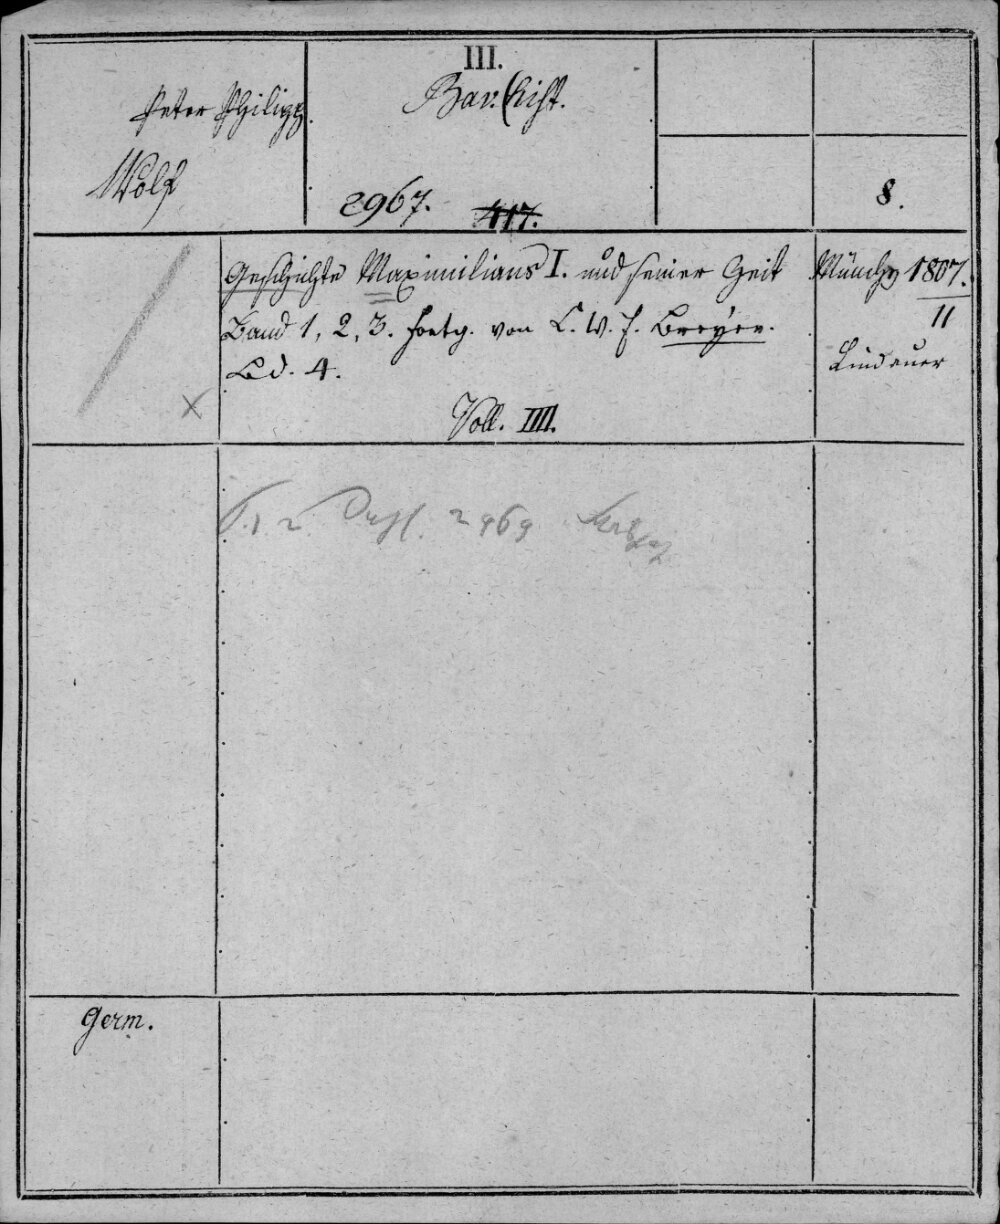 III.
Peter Philipp
Wolf
Bav. hist.
2967. 417.
8.
Geschichte Maximilians I. und seiner Zeit
Band 1, 2, 3. fortg. von C. W. F. Breyer.
Bd. 4.
Voll. IIII.
München 1807.
11
Lindauer
x
2 Dupl. 2969
Germ.